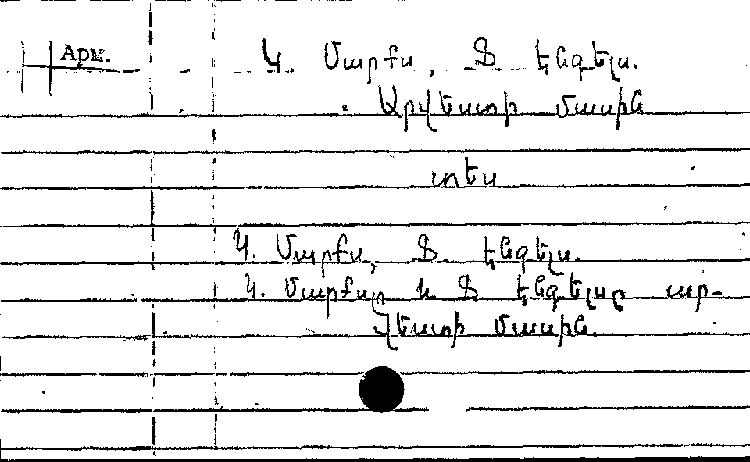 Арм.
Կ. Մարքս, Ֆ. Էնգելս.
Արվեստի մասին
տես
Կ. Մարքս, Ֆ. Էնգելս.
Կ. Մարքսը և Ֆ. Էնգելսը ար-
վեստի մասին.